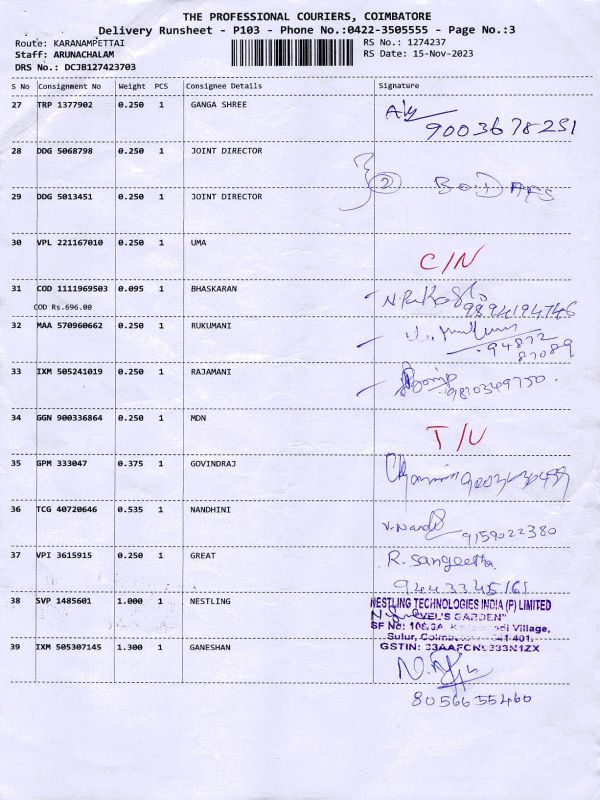 THE PROFESSIONAL COURIERS, COIMBATORE
Delivery Runsheet - P103 - Phone No.:0422-3505555 - Page No.:3
Route: KARANAMPETTAI RS No.: 1274237
Staff: ARUNACHALAM RS Date: 15-Nov-2023
DRS No.: DCJB127423703
S No Consignment No Weight PCS Consignee Details Signature
27 TRP 1377902 0.250 1 GANGA SHREE
9003678251
28 DDG 5068798 0.250 1 JOINT DIRECTOR
2
29 DDG 5013451 0.250 1 JOINT DIRECTOR
30 VPL 221167010 0.250 1 UMA
C/N
31 COD 1111969503 0.095 1 BHASKARAN
COD Rs.696.00
9894194746
32 MAA 570960662 0.250 1 RUKUMANI
94872
87089
33 IXM 505241019 0.250 1 RAJAMANI
9810349750.
34 GGN 900336864 0.250 1 MDN
T/U
35 GPM 333047 0.375 1 GOVINDRAJ
36 TCG 40720646 0.535 1 NANDHINI
9159022380
37 VPI 3615915 0.250 1 GREAT R. Sangeetha
9443345161
38 SVP 1485601 1.000 1 NESTLING NESTLING TECHNOLOGIES INDIA (P) LIMITED
VEL'S GARDEN"
SF No: Village,
Sulur,
39 IXM 505307145 1.300 1 GANESHAN GSTIN:
8056655460